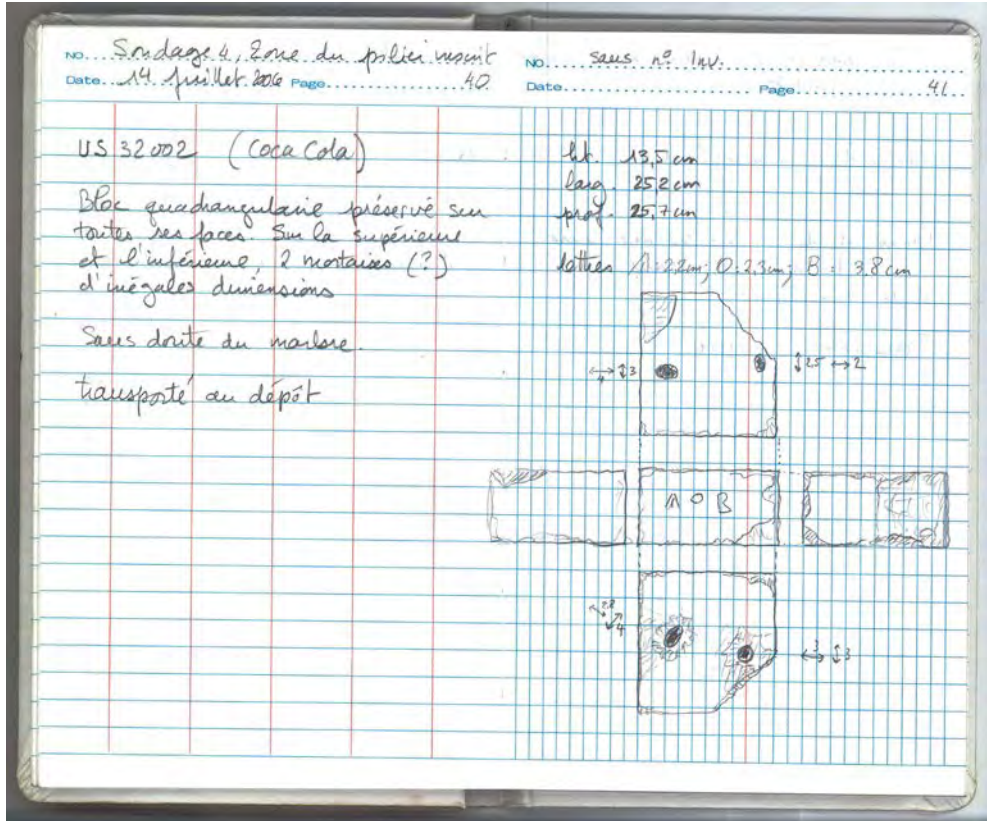 No. Sondage 4, Zone du pilier inscrit
Date. 14 Juillet 2006 Page. 40
US 32002 (Coca Cola)
Bloc quadrangulaire préservé sur
toutes ses faces. Sur la supérieure
et l'inférieure, 2 mortaises (?)
d'inégales dimensions
Sans doute du marbre.
transporté au dépôt
No. sans n° Inv.
Date. Page. 41
ht. 13,5 cm
larg. 25,2 cm
prof. 25,7 cm
lettres Λ: 2,2cm; O: 2,3cm; B = 3.8 cm
↔ 4 ↕ 3
↕ 2,5 ↔ 2
Λ O B
4
↔ 3 ↕ 3